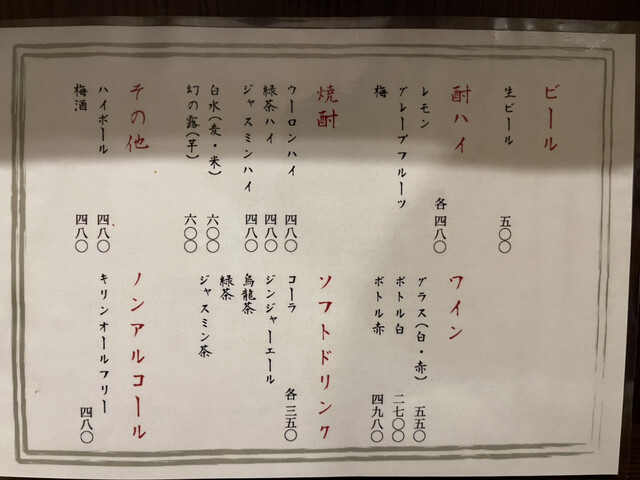 ビール
生ビール 五〇〇
酎ハイ
レモン
グレープフルーツ
梅
各 四八〇
ワイン
グラス(白・赤) 五五〇
ボトル白 二七〇〇
ボトル赤 四九八〇
焼酎
ウーロンハイ 四八〇
緑茶ハイ 四八〇
ジャスミンハイ 四八〇
白水(麦・米) 六〇〇
幻の露(芋) 六〇〇
ソフトドリンク
各 三五〇
コーラ
ジンジャーエール
烏龍茶
緑茶
ジャスミン茶
その他
ハイボール 四八〇
梅酒 四八〇
ノンアルコール
キリンオールフリー 四八〇